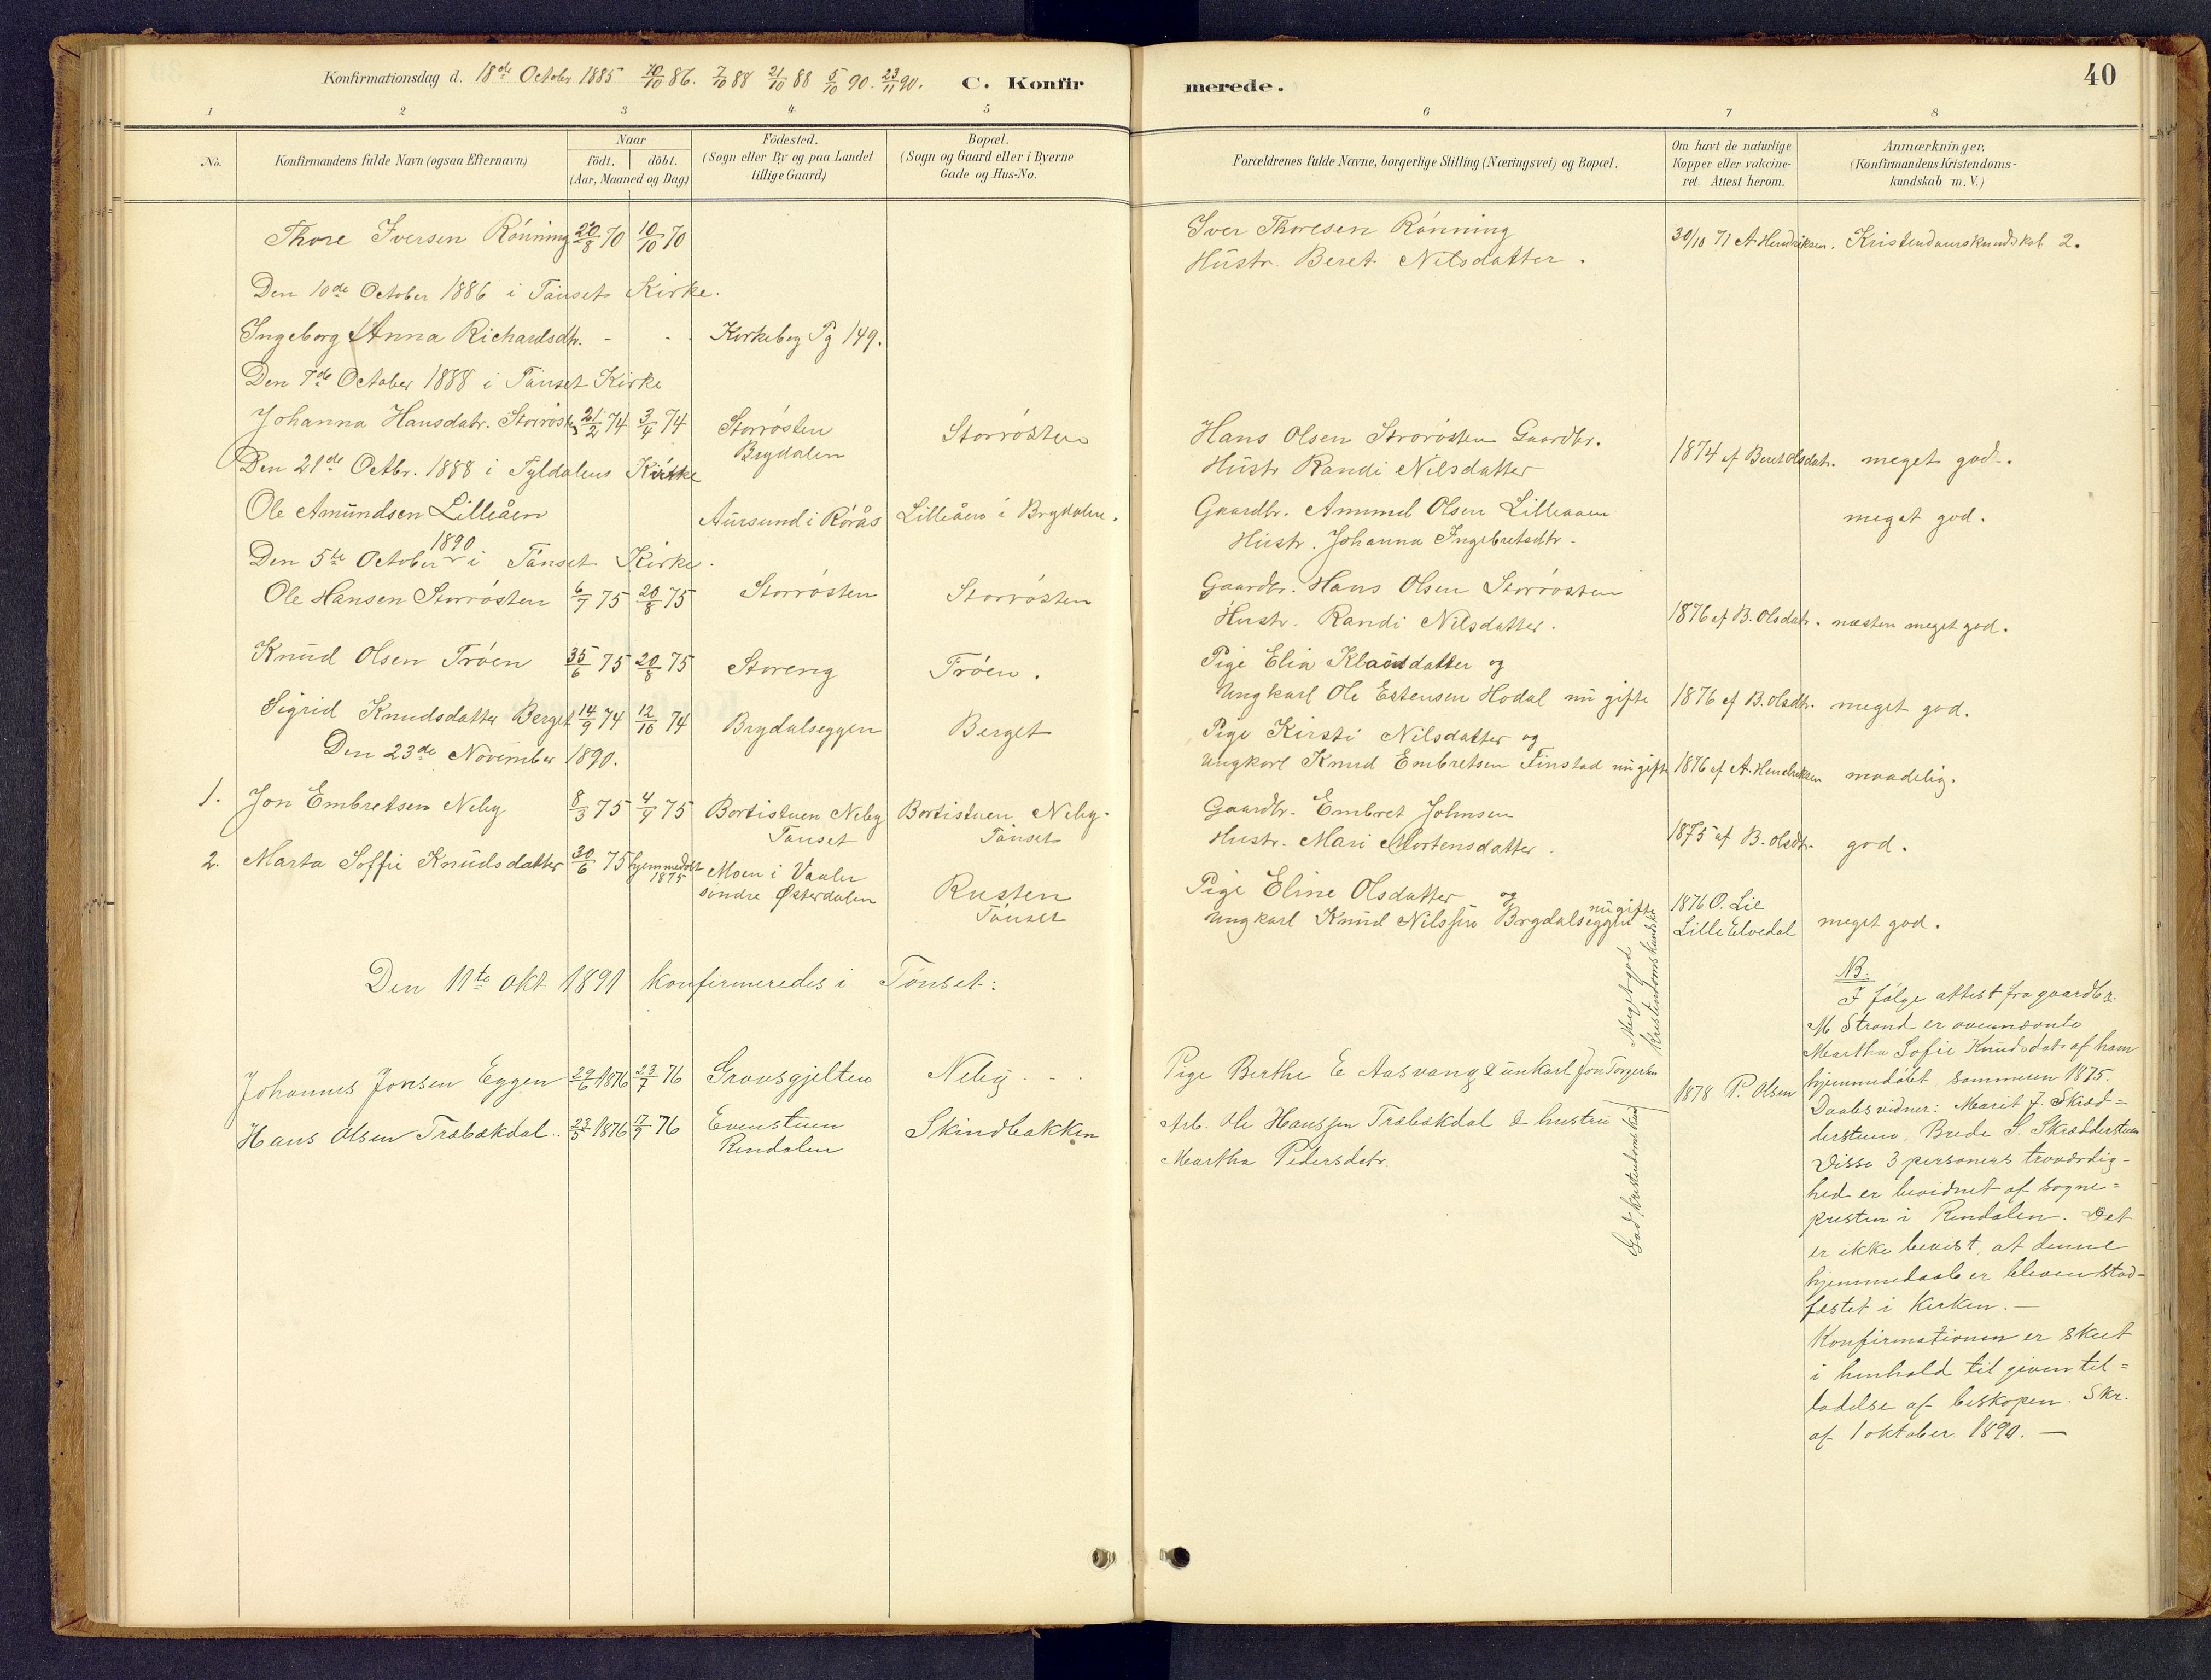 Konfirmationsdag d. 18de October 1885 10/10 86. 7/10 88 21/10 88 5/10 90. 23/11 90. C. Konfirmerede. 40
1 2 3 4 5 6 7 8
No. Konfirmandens fulde Navn (ogsaa Efternavn) Naar födt. döbt. (Aar, Maaned og Dag) Födested. (Sogn eller By og paa Landet tillige Gaard) Bopæl. (Sogn og Gaard eller i Byerne Gade og Hus-No. Forældrenes fulde Navne, borgerlige Stilling (Næringsvei) og Bopæl. Om havt de naturlige Kopper eller vakcineret. Attest herom. Anmærkninger, (Konfirmandens Kristendomskundskab m. V.)
Thore Iversen Rönning 20/8 70 10/10 70 Iver Thoresen Rönning 30/10 71 A. Hendriksen. Kristendomskundskab 2.
Hustr. Beret Nilsdatter.
Den 10de October 1886 i Tönset Kirke.
Ingeborg Anna Richardsdtr. - - - Kirkebog Pg 149.
Den 7de October 1888 i Tönset Kirke
Johanna Hansdatr. Storrösten 21/2 74 3/4 74 Storrösten Brydalen Storrösten Hans Olsen Strorösten Gaardbr. 1874 af Beret Olsdatr. meget god.
Hustr Randi Nilsdatter
Den 21de Octbr. 1888 i Tyldalens Kirke
Ole Amundsen Lilleåen Aursund i Rörås Lilleåen i Brydalen. Gaardbr. Amund Olsen Lilleaaen meget god.
Hustr. Johanna Ingebretsdtr.
Den 5te October 1890 i Tönset Kirke.
Ole Hansen Storrösten 6/7 75 20/8 75 Storrösten Storrösten Gaardbr. Hans Olsen Storrösten 1876 af B. Olsdatr. næsten meget god.
Hustr. Randi Nilsdatter.
Knud Olsen Tröen 35/6 75 20/8 75 Storeng Tröen. Pige Elia Klausdatter og
Ungkarl Ole Estensen Hodal nu gifte 1876 af B. Olsdtr. meget god.
Sigrid Knudsdatter Berget 14/9 74 12/10 74 Brydalseggen Berget Pige Kirsti Nilsdatter og
Ungkarl Knud Embretsen Finstad nu gifte 1876 af A. Hendriksen maadelig.
Den 23de November 1890.
1. Jon Embretsen Neby 8/3 75 4/4 75 Bortistuen Neby Tönset Bortistuen Neby Tönset Gaardbr. Embret Johnsen 1875 af B. Olsdtr. god.
Hustr. Mari Mortensdatter.
2. Marta Soffie Knudsdatter 30/6 75 hjemmedöbt 1875 Moen i Vaaler söndre Østerdalen Rusten Tönset Pige Eline Olsdatter og 1876 O. Lie Lille Elvedal meget god.
Ungkarl Knud Nilssen Brydalseggen nu gifte
Den 11te Okt 1891 konfirmeredes i Tönset:
Johannes Jonsen Eggen 29/6 1876 23/7 76 Graasgjelten Neby - - - Pige Berthe E Aasvang & unkarl Jon Torgersen 1878 P. Olsen
Meget god kristendomskundskab
Hans Olsen Træbakdal. 23/5 1876 17/9 76 Evenstuen Rendalen Skindbakken Arb. Ole Hanssen Træbakdal & hustru
Martha Pedersdatr.
God kristendomskund
NB.
I fölge attest fra gaardbr.
M Strand er ovennævnte
Martha Sofie Knudsdatr af ham
hjemmedöbt sommeren 1875.
Daabsvidner: Marit J. Skræd=
derstuen, Brede S. Skrædderstuen
Disse 3 personers troværdig=
hed er bevidnet af sogne=
presten i Rendalen. Det
er ikke bevist, at denne
hjemmedaab er bleven stad=
fæstet i Kirken. —
Konfirmationen er skeet
i henhold til given til=
ladelse af biskopen. Skr.
af 1 oktober 1890. —